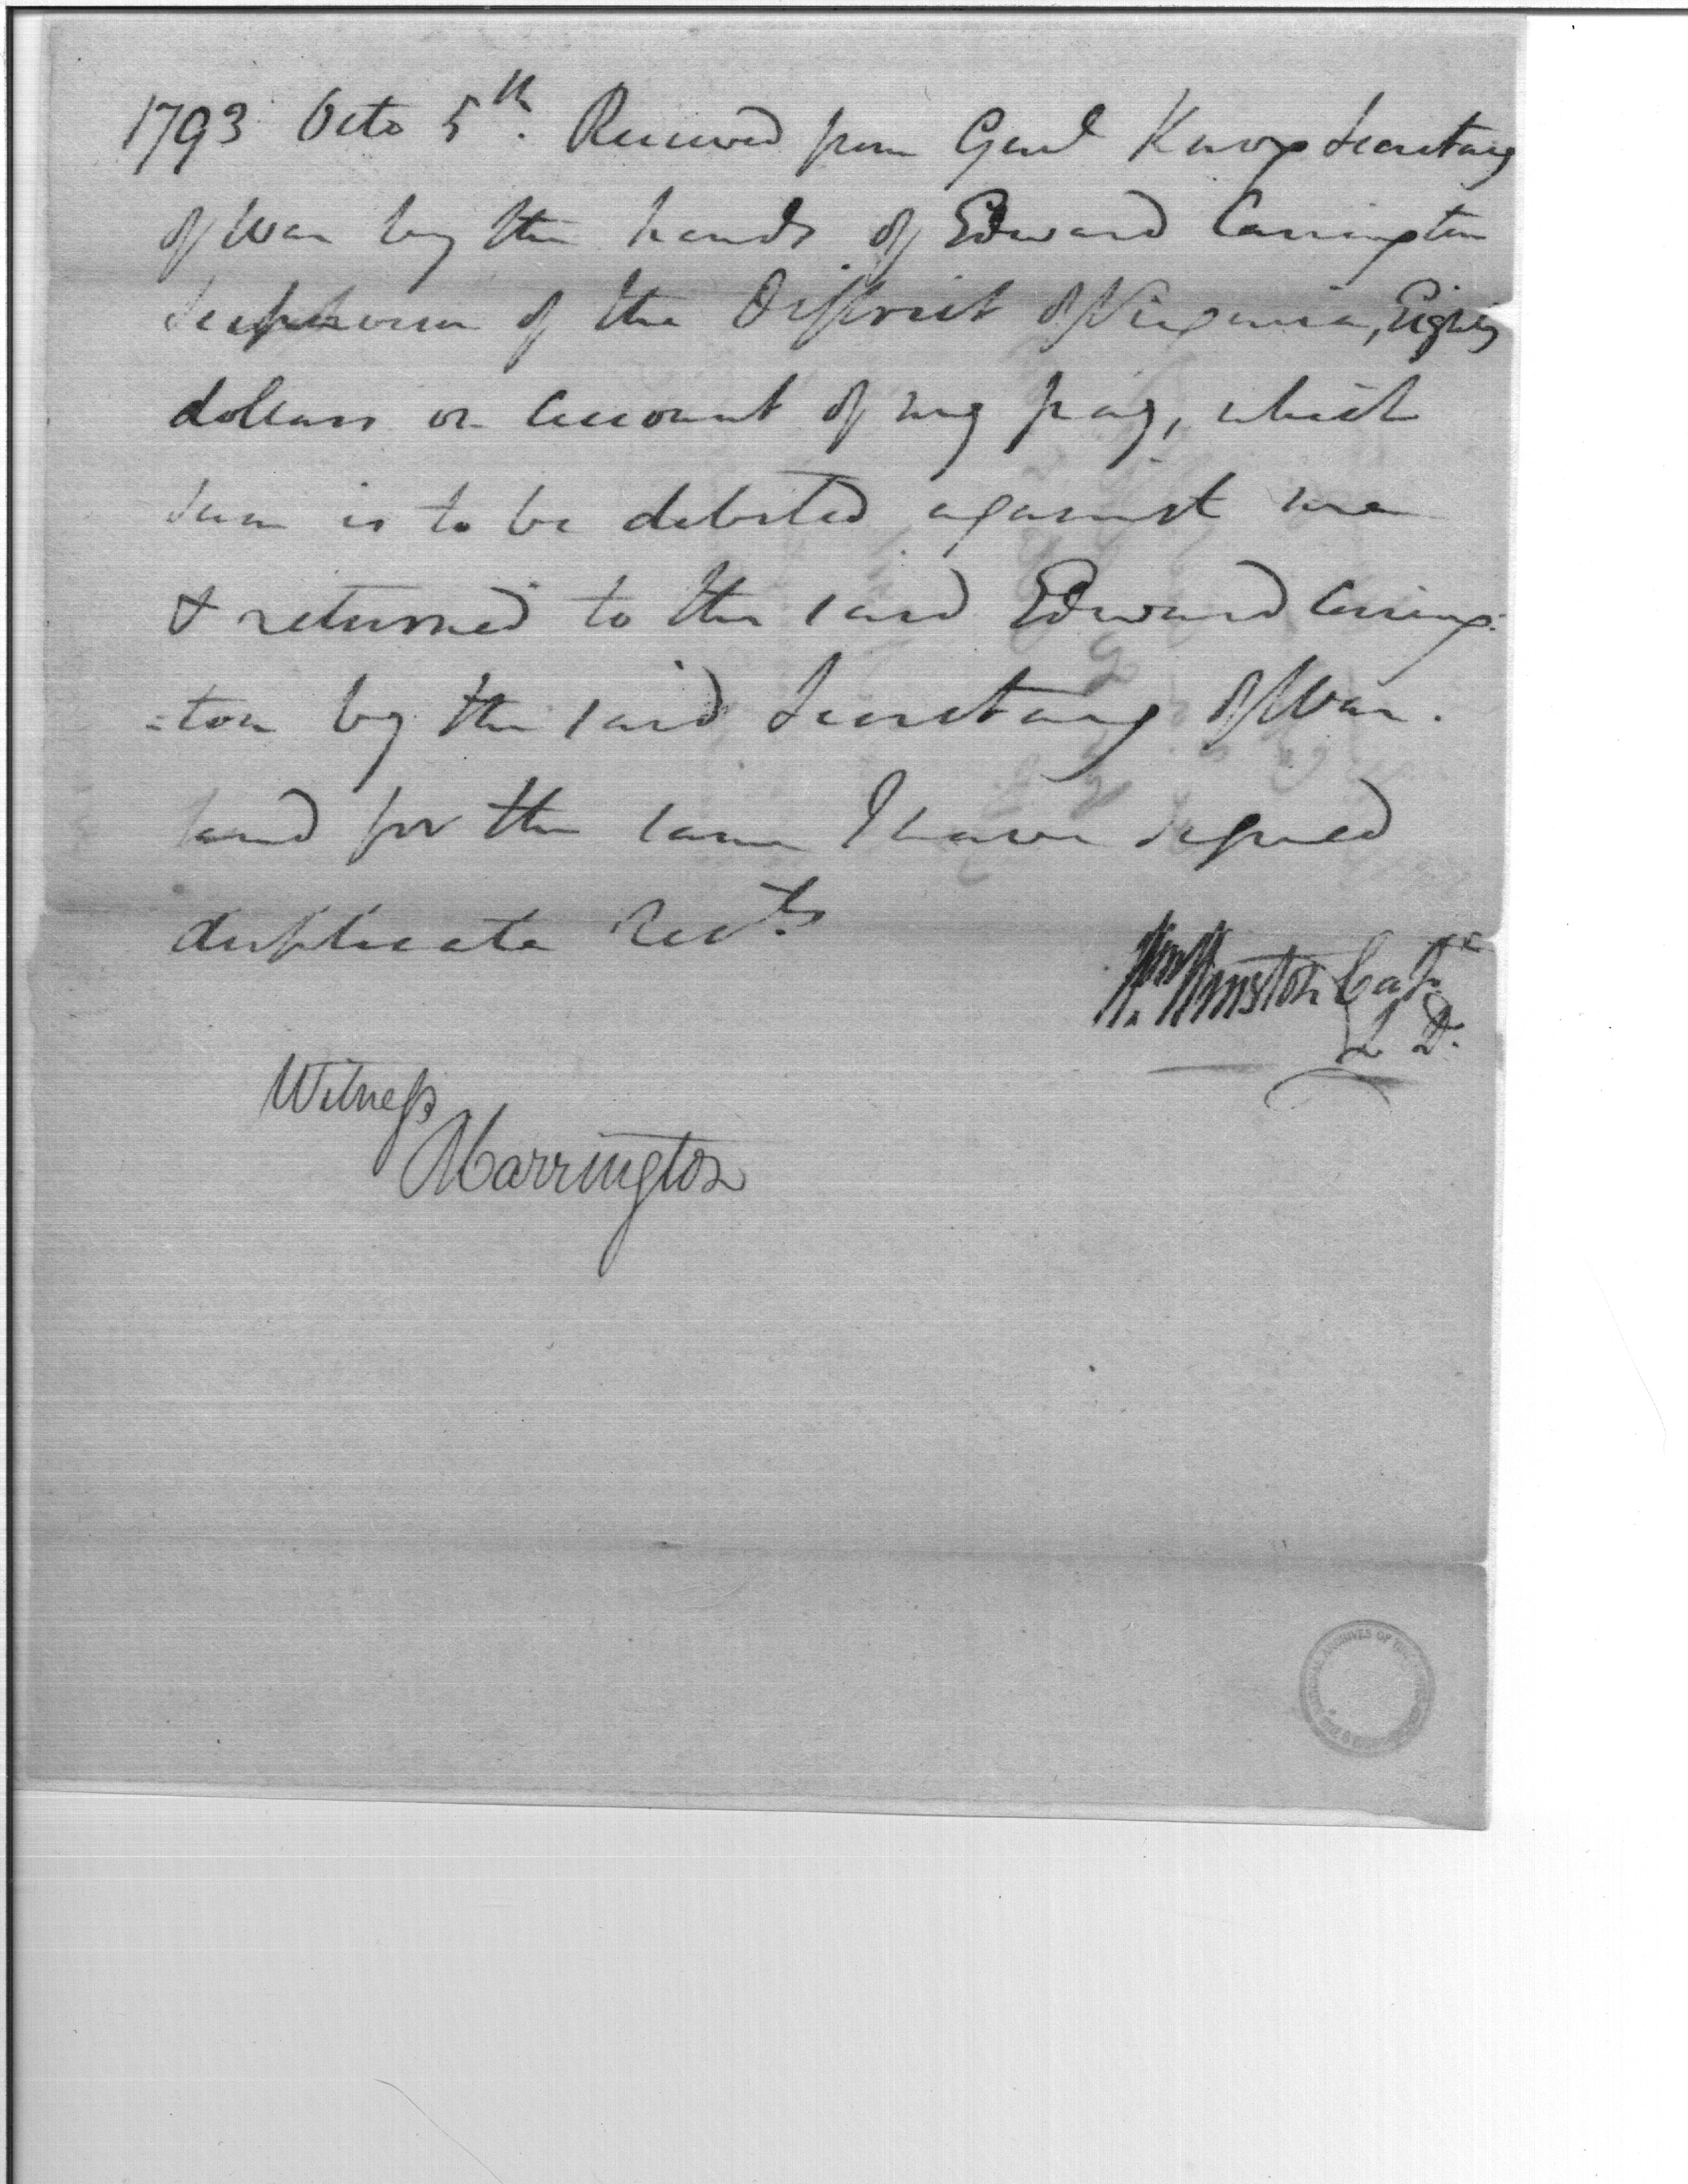 1793 Octo 5th. Received from Genl Knox Secretary
of War by the hands of Edward Carrington
Supervisor of the District of Virginia, Eighty
dollars on account of my pay, which
sum is to be debited against me
& returned to the said Edward Carring:
=ton by the said Secretary of War.
and for the same I have signed
duplicate Rects
Wm Winston Capt
L D.
Witness
Carrington